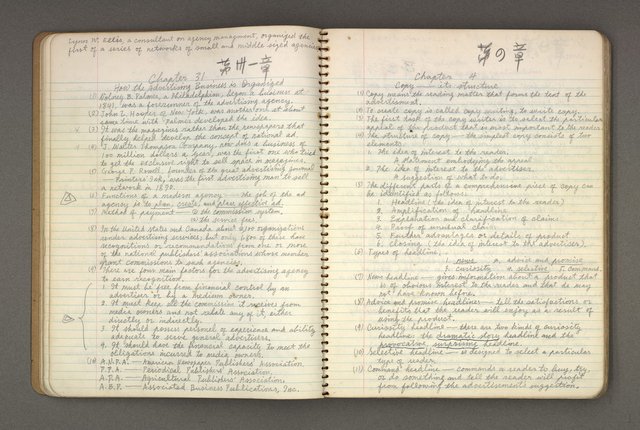 Lynus W. Ellis, a consultant on agency management, organized the
first of a series of networks of small and middle sized agencies
第卅一章
Chapter 31
How the Advertising Business is Organized
(1) Volney B. Palmer, a Philadelphian, began a business at
1841, was a forerunner of the advertising agency.
(2) John L. Hooper of New York, and another one at about
same time with Palmer developed the idea.
(3) It was the magazines rather than the newspapers that
finally helped develop the concept of national ad.
(4) J. Walter Thompson Company, now does a business of
100 million dollars a year, was the first one who tried
to get the exclusive right to sell space in magazines.
(5) George P. Rowell, founder of the great advertising journal
Printers' Ink, was the first advertising man to sell
a network in 1870.
(6) Functions of a modern agency — the job of the ad
agency is to plan, create, and place effective ad.
(7) Method of payment — ① the commission system,
② the service fees.
(8) In the United States and Canada about 3,100 organizations
render advertising services, but only 1,800 of these have
recognitions or recommendations from one or more
of the national publishers' associations whose member
grant commissions to such agencies.
(9) There are four main factors for the advertising agency
to earn recognition.
1. It must be free from financial control by an
advertiser or by a medium owner.
2. It must keep all the commission it receives from
media owners and not rebate any of it, either
directly or indirectly.
3. It should possess personel of experience and ability
adequate to serve general advertisers.
4. It should have the financial capacity to meet the
obligations incurred to media owners.
(10) A.N.P.A. — American Newspaper Publishers' Association
P.P.A. — Periodical Publishers' Association.
A.P.A. — Agricultural Publishers' Association.
A.B.P. — Associated Business Publications, Inc.
第の章
Chapter 4
Copy — its structure
(1) Copy means the reading matter that forms the text of the
advertisement.
(2) To create copy is called copy writing, to write copy.
(3) The first task of the copy writer is to select the particular
appeal of the product that is most important to the reader.
(4) The structure of copy — the simplest copy consists of two
elements.
1. The idea of interest to the reader.
A statement embodying the appeal
2. The idea of interest to the advertiser.
A suggestion of what to do.
(5) The different parts of a comprehensive piece of copy can
be identified as follows:
1. Headline (the idea of interest to the reader)
2. Amplification of headline
3. Explanation and clarification of claims
4. Proof of unusual claim
5. Further advantages or details of product
6. Closing (the idea of interest to the advertiser)
(6) Types of headlines.
1. news 2. advice and promise
3. curiosity 4. selective 5. command.
(7) News headline — gives information about a product that
is of obvious interest to the reader and that he may
not have known before.
(8) Advice and promise headlines — tell the satisfactions or
benefits that the reader will enjoy as a result of
using the product.
(9) Curiosity headline — there are two kinds of curiosity
headline: the dramatic story headline and the
provocative, surprising headline.
(10) Selective headline — is designed to select a particular
type of reader.
(11) Command headline — commands a reader to buy, try,
or do something and tell the reader will profit
from following the advertisement's suggestion.